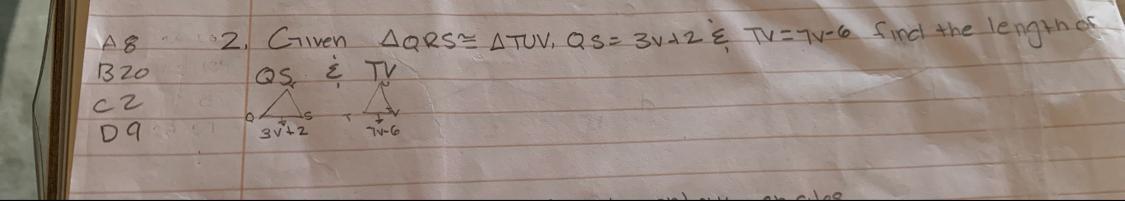 A 8 2. Given △QRS ≅ △TUV, QS = 3v+2 & TV = 7v-6 find the length of
B 20 QS & TV
C 2 Q S T V
D 9 3v+2 7v-6